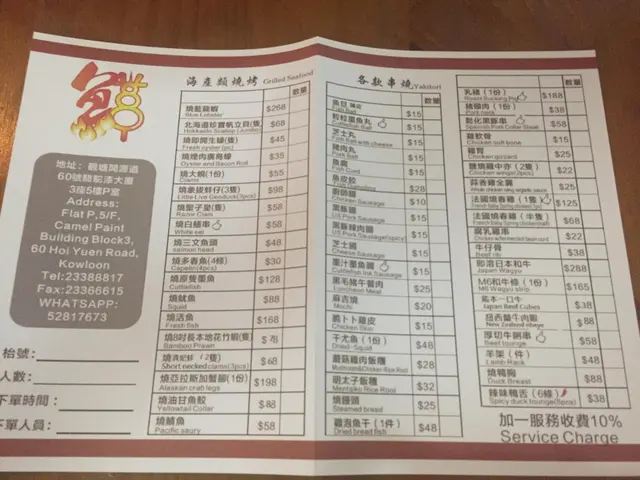 鱻
地址：觀塘開源道
60號駱駝漆大廈
3座5樓P室
Address:
Flat P,5/F,
Camel Paint
Building Block3,
60 Hoi Yuen Road,
Kowloon
Tel:23388817
Fax:23366615
WHATSAPP:
52817673
枱號：
人數：
下單時間：
下單人員：
海產類燒烤 Grilled Seafood
數量
燒藍龍蝦 $268
Blue Lobster
北海道珍寶帆立貝(隻) $68
燒即開生蠔(隻) $45
Fresh oyster (pc)
燒煙肉廣島蠔 $35
Oyster and Bacon Roll
燒大蜆(1份) $55
Clams
燒象拔蚌仔(3隻) $98
Little Live Geoduck(3pcs)
燒聖子皇(隻) $58
Razor Clam
燒白鱔串 $58
White eel
燒三文魚頭 $48
salmon head
燒多春魚(4條) $30
Capelin(4pcs)
燒原隻墨魚 $128
Cuttlefish
燒魷魚 $88
Squid
燒活魚 $168
Fresh fish
燒8吋長本地花竹蝦(隻)
Bamboo Prawn
燒貴妃蚌（2隻） $68
Short necked clams(3pcs)
燒亞拉斯加蟹腳(1份) $198
Alaskan crab legs
燒油甘魚鮫 $88
Yellowtail Collar
燒鯖魚 $58
Pacific saury
各款串燒 Yakitori
數量
魚旦 $15
Fish Ball
粒粒墨魚丸 $15
Cuttlefish Ball
芝士丸 $15
Fish Ball with cheese
豬肉丸 $15
Pork Ball
魚腐 $15
Fish Curd
魚皮餃 $15
Fish Dumpling
廚師腸 $10
黑豚腸 $15
US Pork Sausage
黑豚辣肉腸 $15
US Pork Sausage(spicy)
芝士腸 $15
Cheese Sausage
墨汁墨魚腸 $15
Cuttlefish Ink Sausage
黑毛豬午餐肉 $25
Luncheon Meat
麻吉燒 $20
Mochi
脆卜卜雞皮 $15
Chicken Skin
干尤魚（1份） $48
Dried Squid
蘑菇雞肉飯糰 $28
Mushroom&Chicken Rice Roll
明太子飯糰 $32
Mentaiko Rice Roll
燒饅頭 $25
Steamed bread
雞泡魚干（1件） $48
Dried bread fish
數量
乳豬（1份） $188
豬頸肉（1份） $38
Pork neck
黑毛豚串 $58
Spanish Pork Collar Steak
雞軟骨 $15
Chicken soft bone
雞腎 $25
Chicken gizzard
鹽燒雞中亦（2隻） $22
Chicken wings(2pcs)
蒜香雞全翼 $25
Whole chicken wing organic sauce
法國燒春雞（1隻） $125
法國燒春雞（半隻） $68
腐乳雞串 $22
Chicken w/fermented bean curd
牛仔骨 $38
Beef rib
即溶日本和牛 $288
Japan Wagyu
M6和牛條（1份） $165
M6 Wagyu strip
熊本一口牛 $38
Japan Beef Cubes
紐西蘭牛肉眼 $88
New Zealand ribeye
厚切牛脷串 $58
Beef tounge
羊架（件） $48
Lamb Rack
燒鴨胸 $88
Duck Breast
辣味鴨舌（6條） $38
Spicy duck tounge(6pcs)
加一服務收費10%
Service Charge